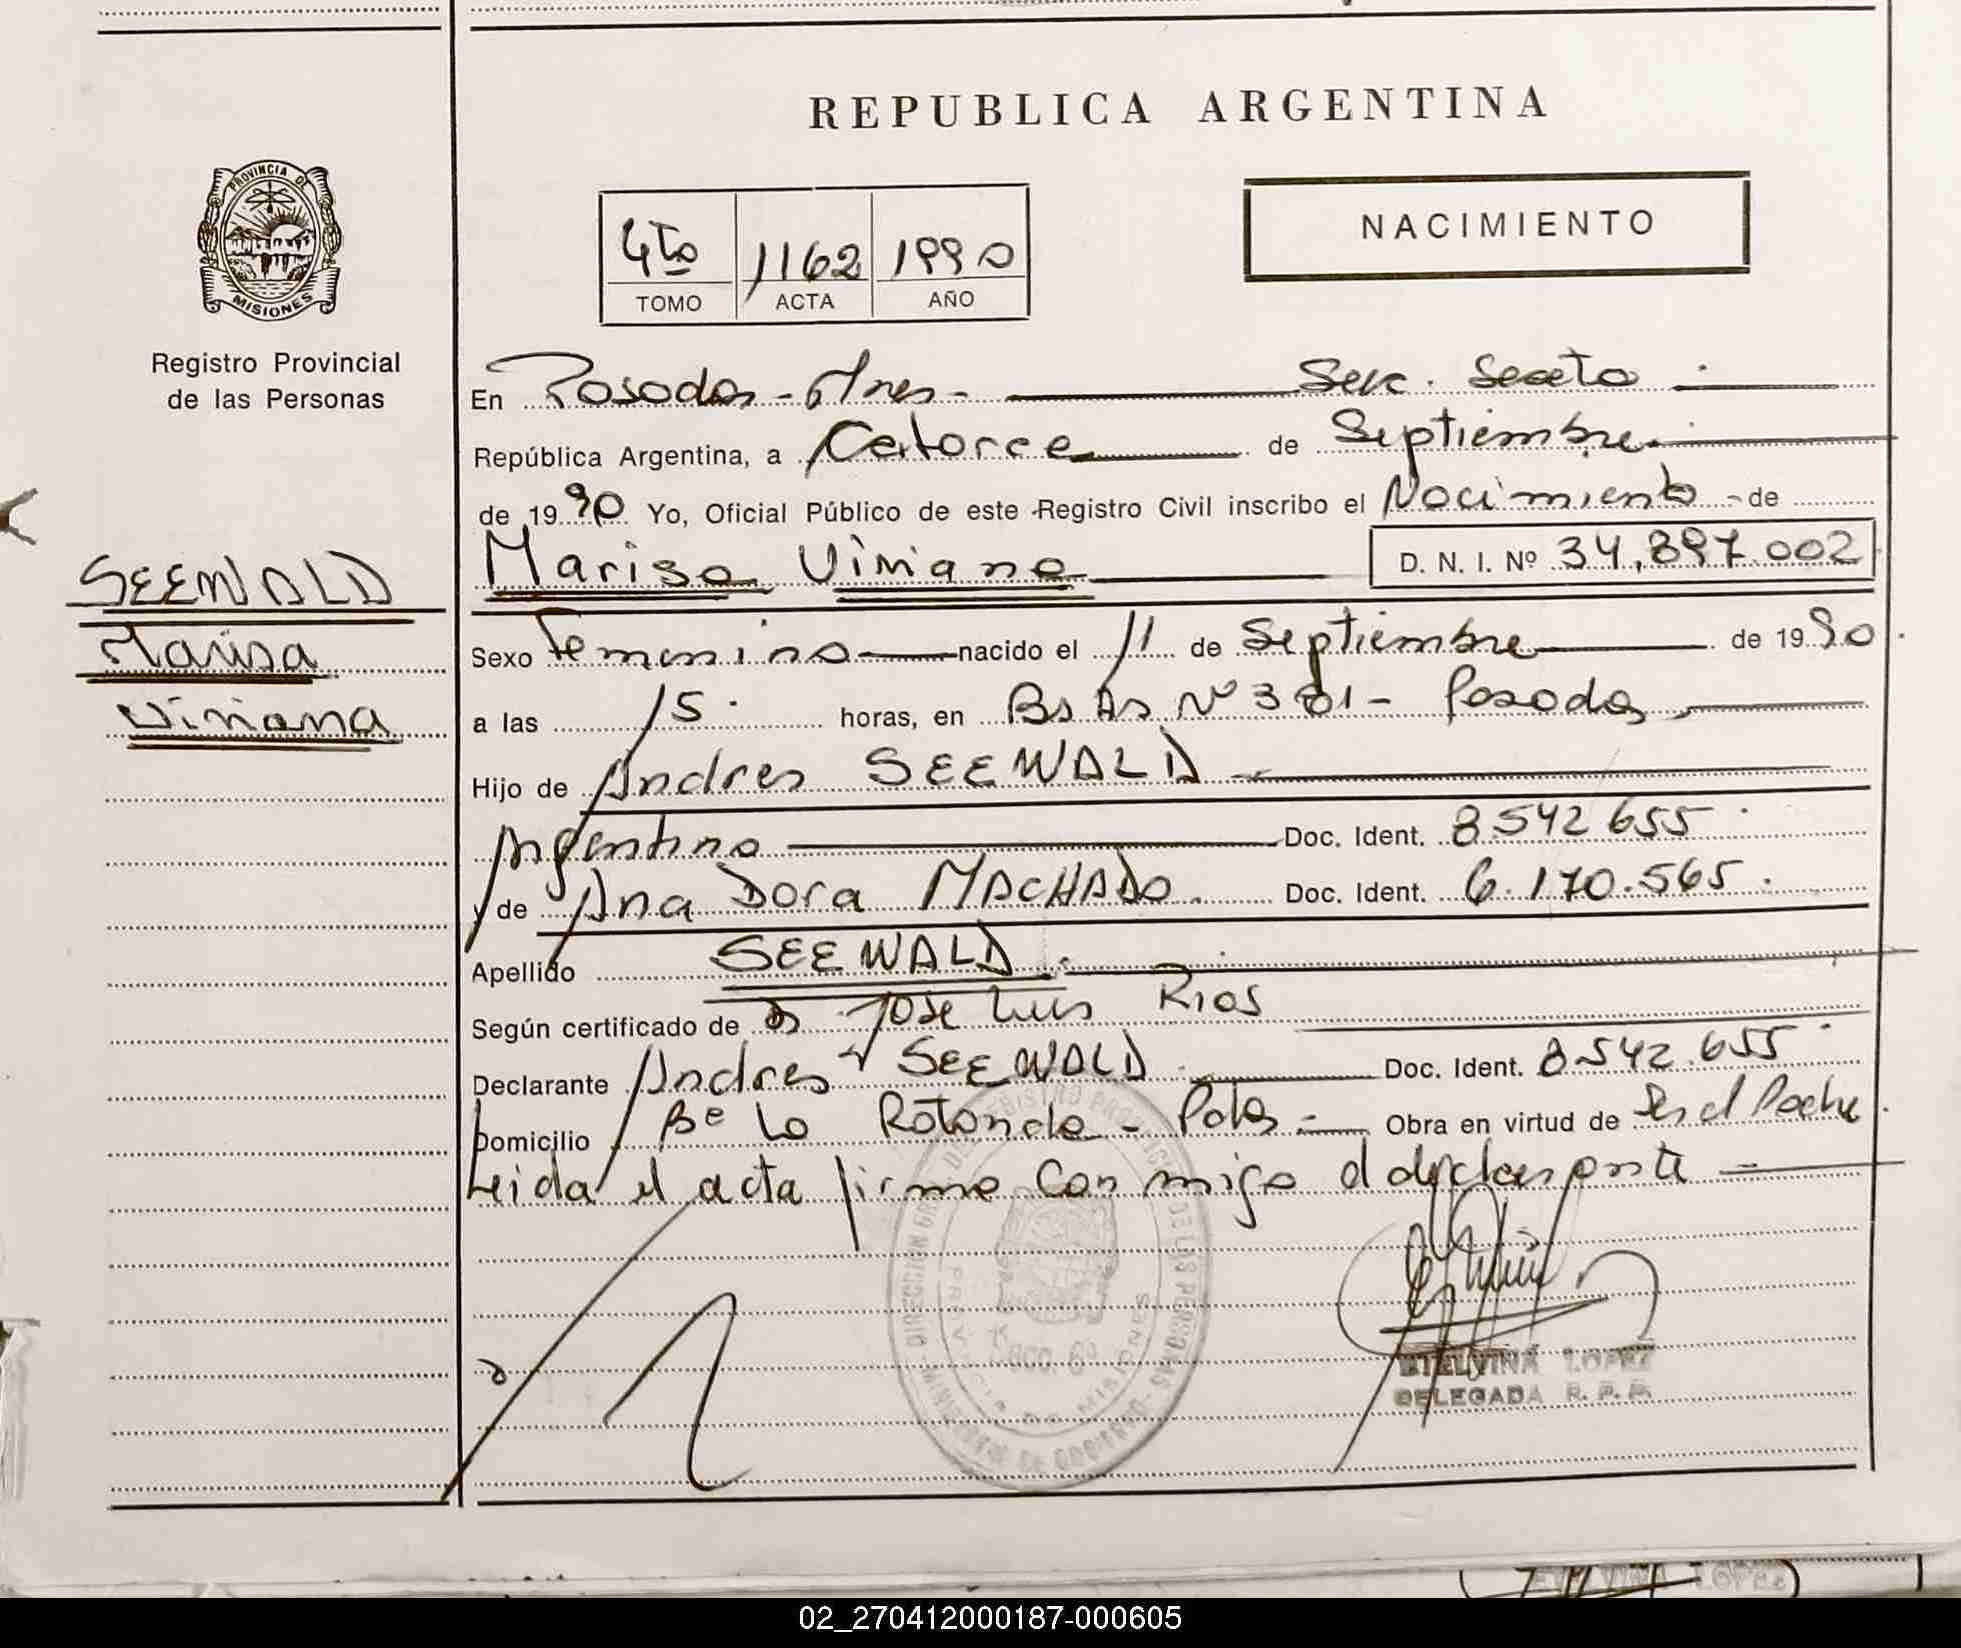 REPUBLICA ARGENTINA
PROVINCIA DE
MISIONES
Registro Provincial
de las Personas
4to 1162 1990
TOMO ACTA AÑO
NACIMIENTO
En Posadas - Mnes - Secc. Sexta
República Argentina, a Catorce de Septiembre
de 1990 Yo, Oficial Público de este Registro Civil inscribo el Nacimiento - de
Marisa Viviana D. N. I. Nº 34.897.002
SEEWALD
Marisa
Viviana
Sexo Femenino nacido el 11 de Septiembre de 1990
a las 15 horas, en Bs As Nº 381 - Posadas
Hijo de Andres SEEWALD
Argentino Doc. Ident. 8.542.655
y de Ana Dora MACHADO Doc. Ident. 6.170.565
Apellido SEEWALD
Según certificado de Jose Luis Rios
Declarante Andres SEEWALD Doc. Ident. 8.542.655
Domicilio Bº La Rotonda - Pdas - Obra en virtud de Ser el Padre
Leida el acta firma con migo el declarante
SECC. 6º
PROVINCIA DE MISIONES
ETELVINA LOPEZ
DELEGADA R. P. P.
02_270412000187-000605